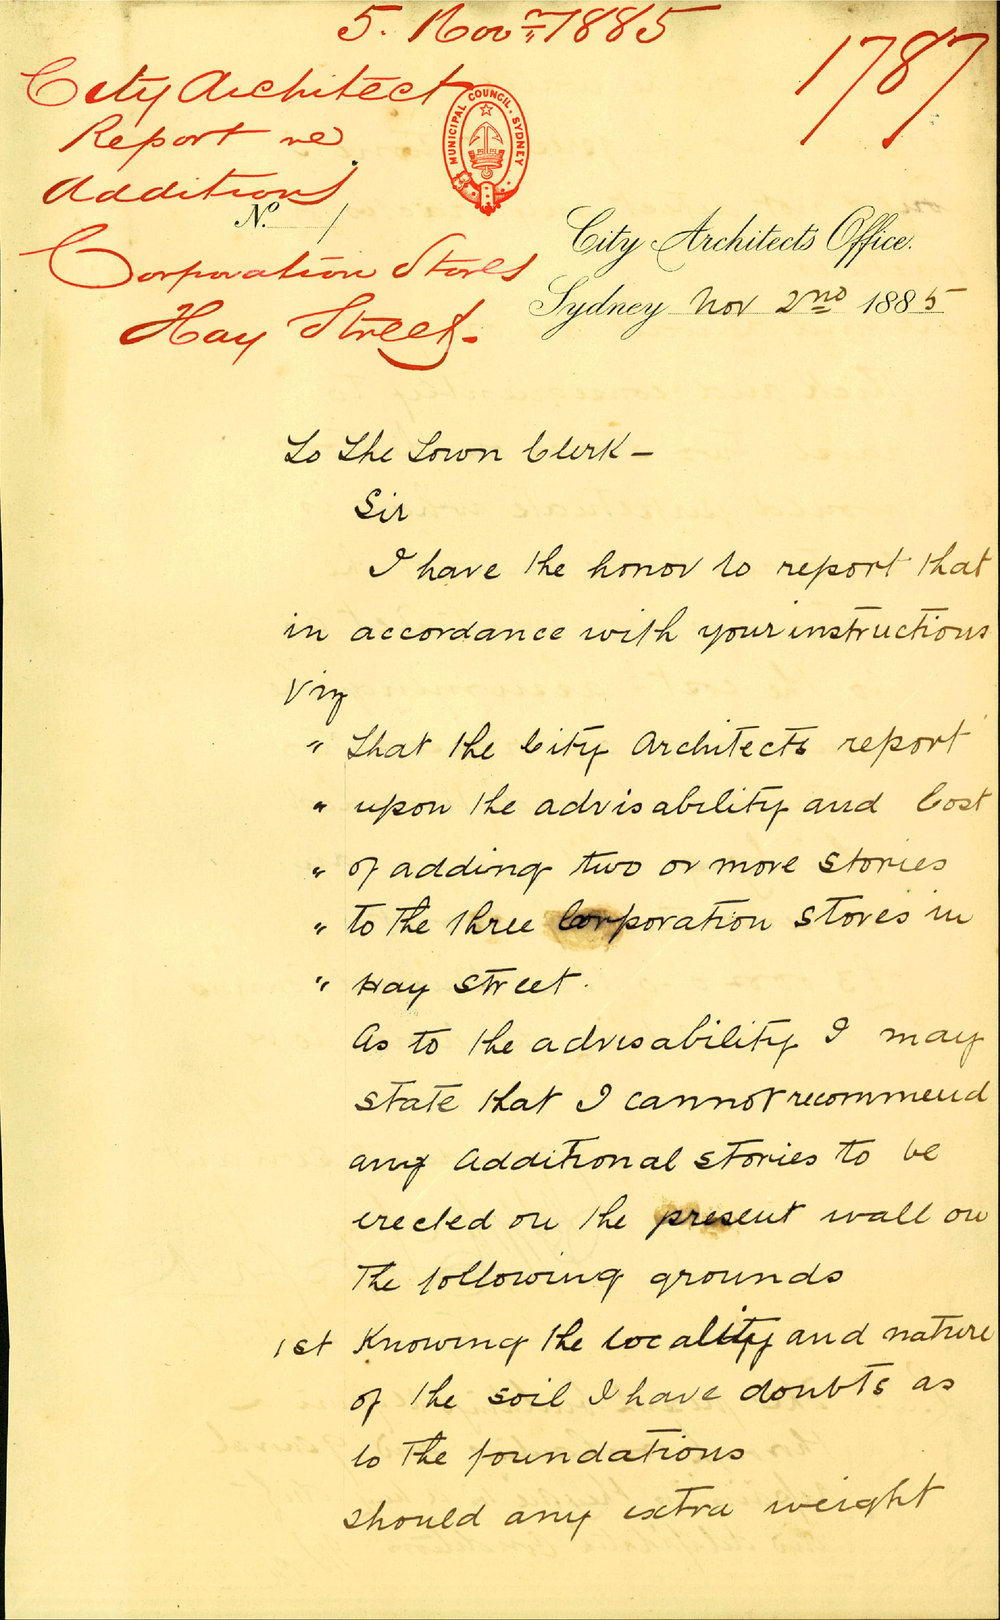 5. Novr. 1885
1787
City Architect
Report re
Additions
Corporation Stores
Hay Street.
MUNICIPAL COUNCIL. SYDNEY
No. /
City Architects Office.
Sydney Nov 2nd 1885
To The Town Clerk —
Sir
I have the honor to report that
in accordance with your instructions
Viz
" That the City Architects report
" upon the advisability and Cost
" of adding two or more stories
" to the three Corporation Stores in
" Hay Street.
As to the advisability I may
state that I cannot recommend
any additional stories to be
erected on the present wall on
the following grounds
1st Knowing the locality and nature
of the soil I have doubts as
to the foundations
should any extra weight